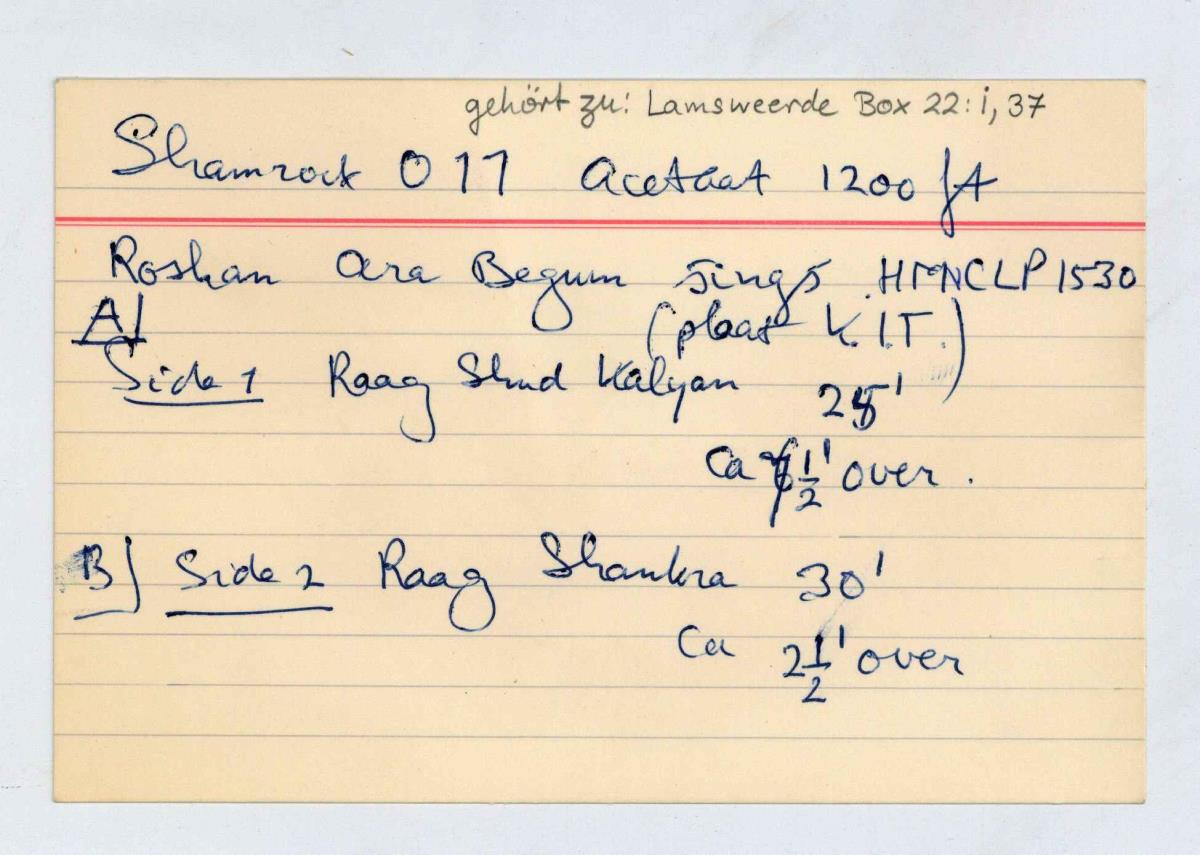 gehört zu: Lamsweerde Box 22: i, 37
Shamrock 011 Acetaat 1200 ft
Roshan Ara Begum sings HMNCLP 1530
A) (plaat K.I.T.)
Side 1 Raag Shud Kalyan 25'
Ca 1/2' over.
B) Side 2 Raag Shankra 30'
Ca 2 1/2' over